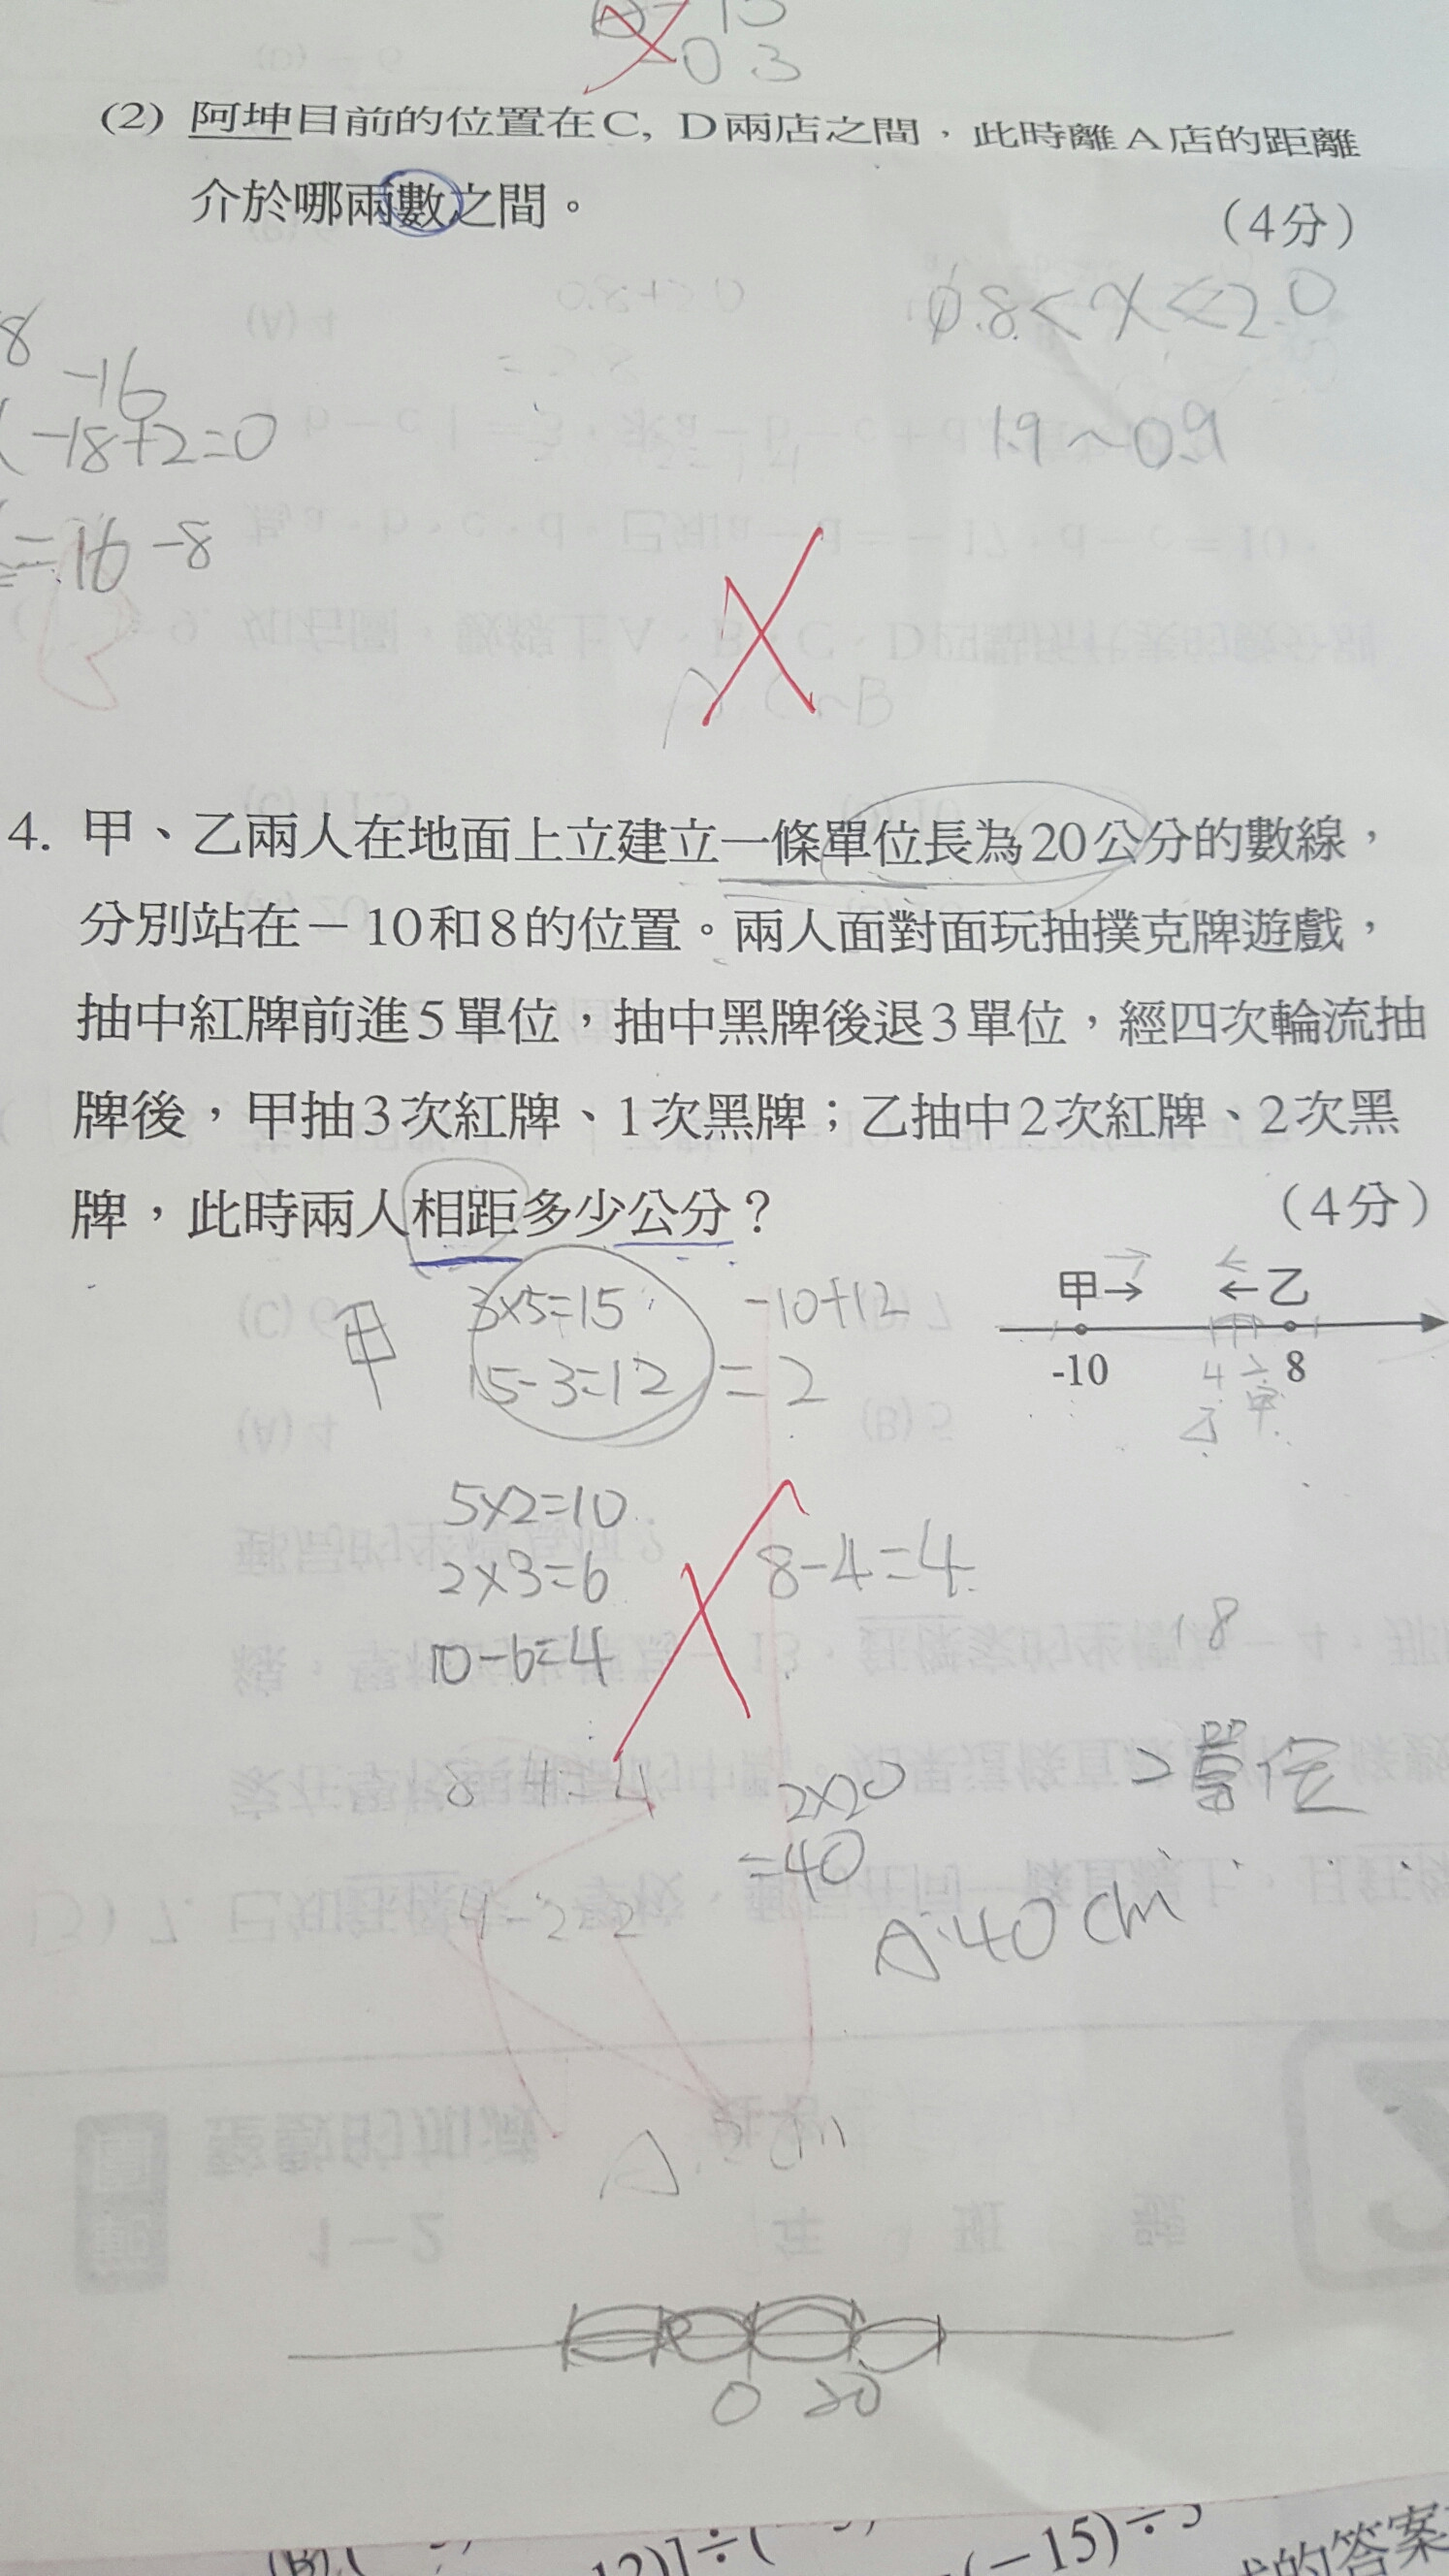 0 3
(2) 阿坤目前的位置在C, D兩店之間，此時離A店的距離
介於哪兩數之間。
(4分)
0.8<x<2.0
1.9~0.9
8
-16
(-18+2=0
=16-8
4. 甲、乙兩人在地面上立建立一條單位長為20公分的數線，
分別站在－10和8的位置。兩人面對面玩抽撲克牌遊戲，
抽中紅牌前進5單位，抽中黑牌後退3單位，經四次輪流抽
牌後，甲抽3次紅牌、1次黑牌；乙抽中2次紅牌、2次黑
牌，此時兩人相距多少公分？
(4分)
甲
3×5=15
15-3=12
-10+12
=2
甲→ ←乙
-10 8
4 2
乙 甲
5×2=10
2×3=6
10-6=4
8-4=4
18
8-4=4
2×20
=40
2單位
4-2=2
A:40cm
0 20
(B)
12)]÷(
(－15)÷5
的答案